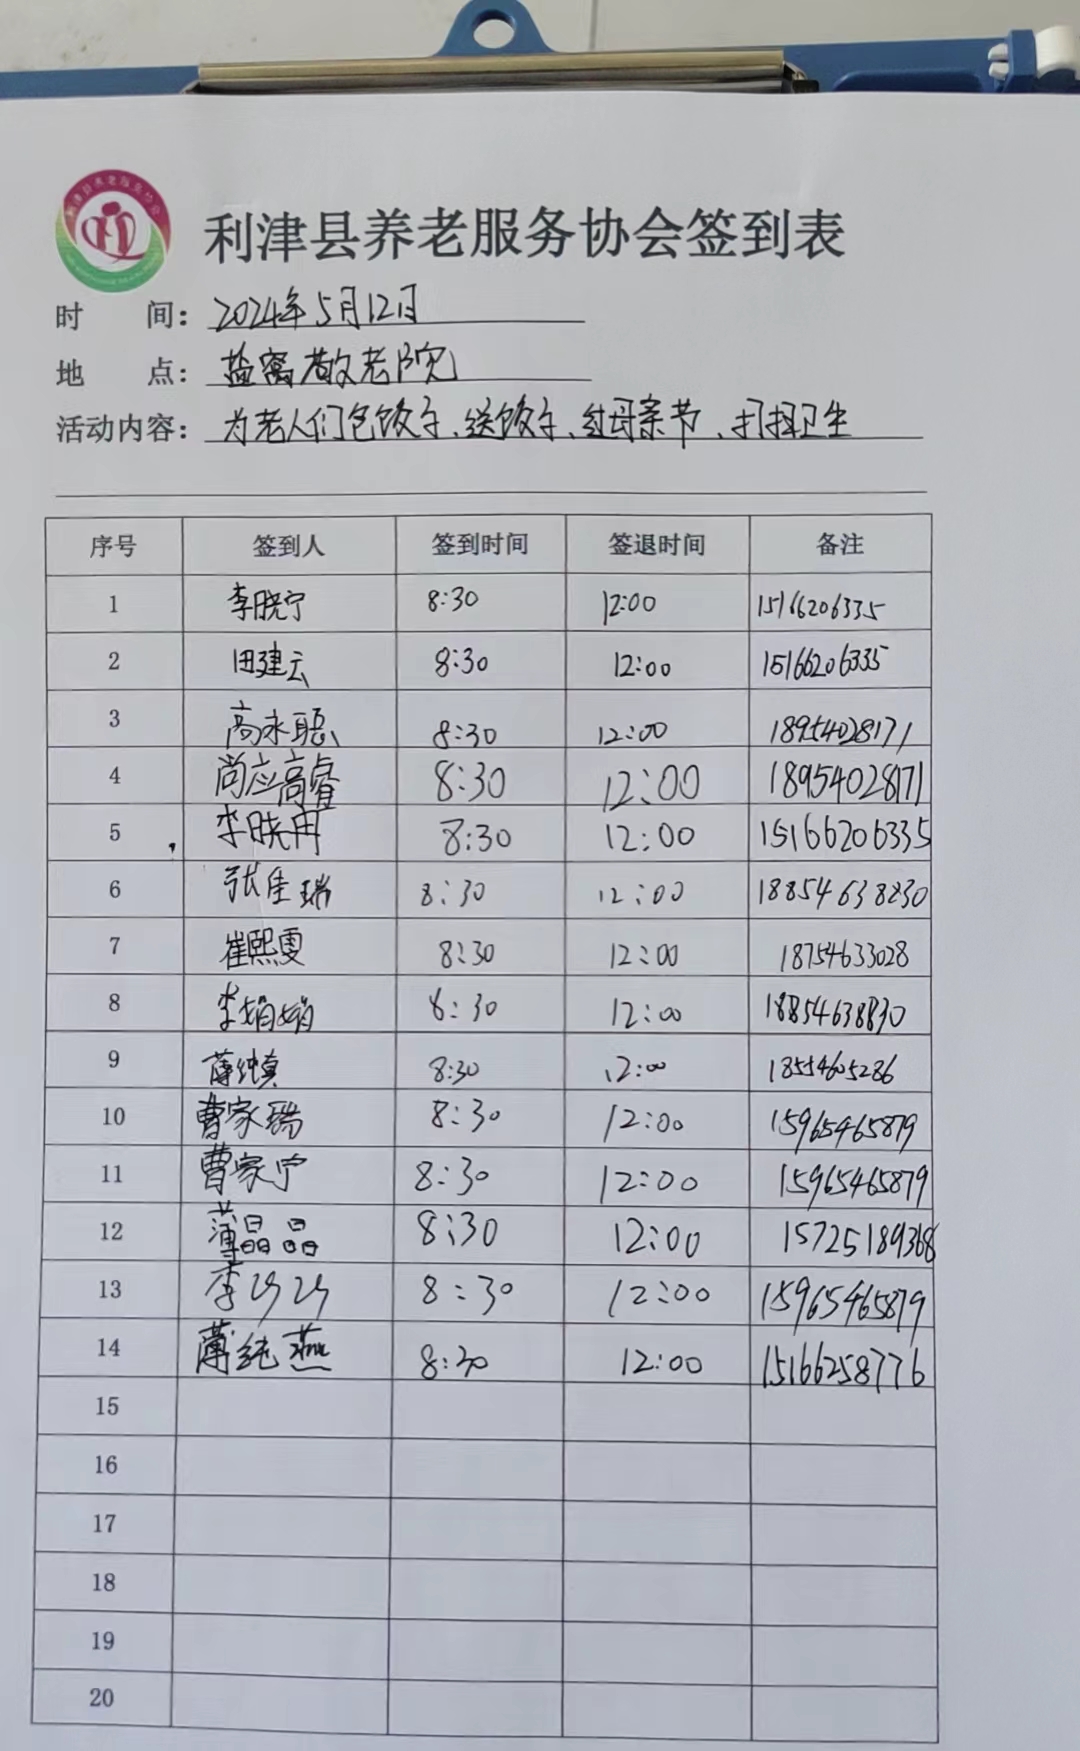 利津县养老服务协会
利津县养老服务协会签到表
时 间: 2024年5月12日
地 点: 盐窝敬老院
活动内容: 为老人们包饺子、送饺子、过母亲节、打扫卫生
序号 签到人 签到时间 签退时间 备注
1 李晓宁 8:30 12:00 15166206335
2 田建云 8:30 12:00 15166206335
3 高永聪 8:30 12:00 18954028171
4 尚应高睿 8:30 12:00 18954028171
5 李晓冉 8:30 12:00 15166206335
6 张佳瑞 8:30 12:00 18854638830
7 崔熙雯 8:30 12:00 18754633028
8 李娟娟 8:30 12:00 18854638830
9 薄纯真 8:30 12:00 18554605286
10 曹家瑞 8:30 12:00 15965465879
11 曹家宁 8:30 12:00 15965465879
12 薄晶晶 8:30 12:00 15725189368
13 李 8:30 12:00 15965465879
14 薄纯燕 8:30 12:00 15166258776
15
16
17
18
19
20